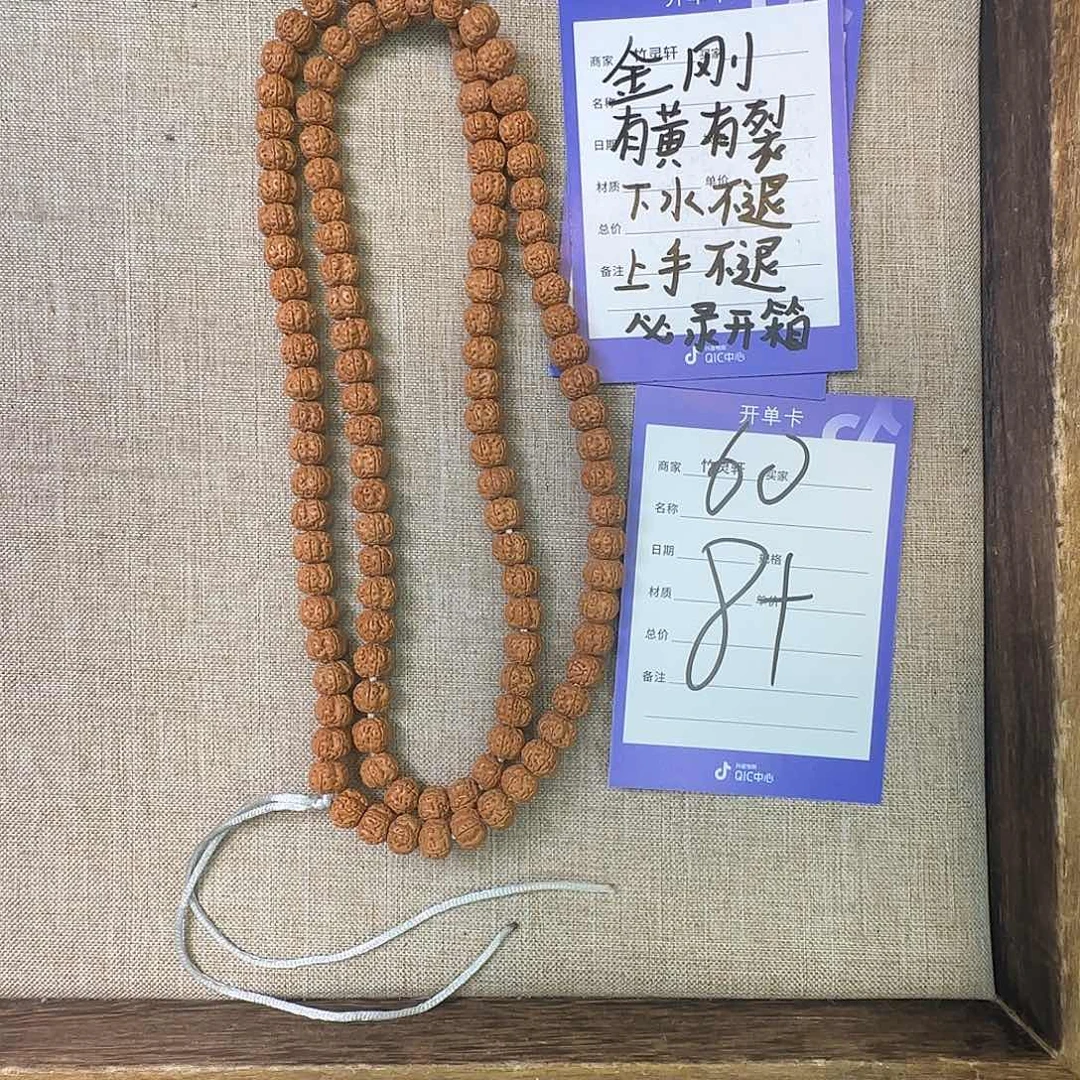 开单卡
商家 竹灵轩
金刚
名称
有黄有裂
日期
材质 单价
下水不退
总价
上手不退
备注
必录开箱
QIC中心
开单卡
商家 竹灵轩 买家
60
名称
日期 规格
84
材质 单价
总价
备注
抖音电商
QIC中心